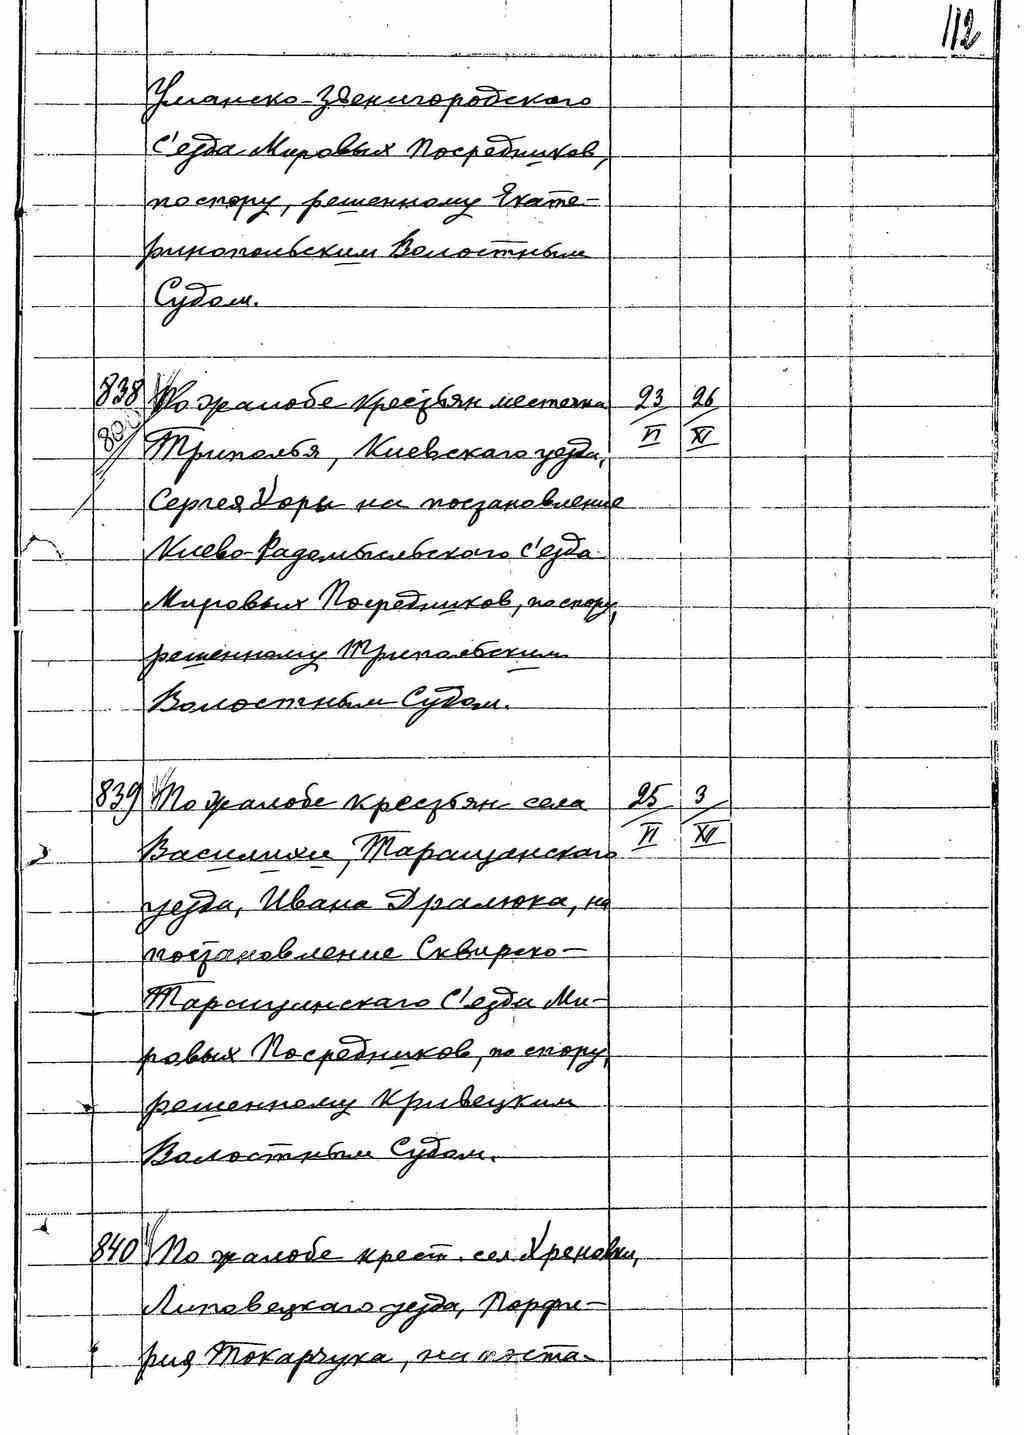 112
Уманско-Звенигородского
С'езда Мировых Посредников,
по спору, решенному Екате-
ринопольским Волостным
Судом.
838 По жалобе крестьян местечка 23/VI 26/XI
Триполья, Киевского уезда,
Сергея Хоры на постановление
Киево-Радомысльского с'езда
Мировых Посредников, по спору,
решенному Трипольским
Волостным Судом.
839 По жалобе крестьян села 25/VI 3/XII
Василихи, Таращанского
уезда, Ивана Дралюка, на
постановление Сквирско-
Таращанского С'езда Ми-
ровых Посредников, по спору,
решенному Кривецким
Волостным Судом.
840 По жалобе крест. сел. Хреновки,
Липовецкаго уезда, Порфи-
рия Токарчука, на поста-